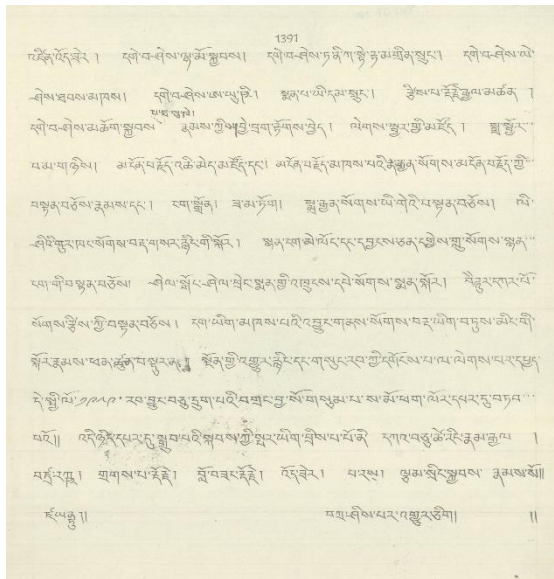 1391
འཛིན་འོད་ཟེར། དགེ་བ་ཤེས་ལྷ་མོ་སྐྱབས། དགེ་བ་ཤེས་ཏ་ནི་ཀ་སྟེ་རྟ་མགྲིན་སྲུང་། དགེ་བ་ཤེས་ཡེ་
ཤེས་ཐབས་མཁས། དགེ་བ་ཤེས་ཨ་ཡུ་ཤྲི། སྨན་པ་ཡེ་དམ་སྲུང་། རྩིས་པ་རྡོ་རྗེ་རྒྱལ་མཚན །
དགེ་བ་ཤེས་མཆོག་སྐྱབས རྣམས་ཀྱི་བྱེ་བྲག་རྟོགས་བྱེད། ལེགས་སྦྱར་གྱི་མཛོད། སྒྲ་སྦྱོར་
པ་མ་ག་ཉིས། མངོན་བརྗོད་འཆི་མེད་མཛོད་དང་། མངོན་བརྗོད་མཁས་པའི་རྣ་རྒྱན་སོགས་མངོན་བརྗོད་ཀྱི་
བསྟན་བཅོས་རྣམས་དང་། ངག་སྒྲོན། ཟ་མ་ཏོག། སྨྲ་རྒྱན་སོགས་ཡི་གེའི་བསྟན་བཅོས། ལི་
ཤིའི་གུར་ཁང་སོགས་བརྡ་གསར་རྙིང་གི་སྐོར། སྙན་ངག་མེ་ལོང་དང་དབྱངས་ཅན་དགྱེས་གླུ་སོགས་སྙན་
ངག་གི་བསྟན་བཅོས། ཤེལ་གོང་ཤེལ་ཕྲེང་སྨན་གྱི་འཁྲུངས་དཔེ་སོགས་སྨན་སྐོར། བཻཌཱུར་དཀར་པོ་
སོགས་རྩིས་ཀྱི་བསྟན་བཅོས། དག་ཡིག་མཁས་པའི་འབྱུང་གནས་སོགས་བརྡ་ཡིག་བཏུས་མིང་གི་
སྐོར་རྣམས་ཕན་ཚུན་བསྡུར་ སྔོན་གྱི་འགྱུར་རྙིང་དང་གསུང་རབ་ཀྱི་དགོངས་པ་ལ་ལེགས་པར་དཔྱད་
དེ་སྤྱི་ལོ་༡༩༥༩ རབ་བྱུང་བཅུ་དྲུག་པའི་བགྲང་བྱ་སོ་གསུམ་པ་ས་མོ་ཕག་ལོར་དཔར་དུ་བཏབ་
པའོ།། འདི་ཉིད་དཔར་དུ་སྒྲུབ་པའི་སྐབས་ཀྱི་སྤར་ཡིག་བྲིས་པ་པོ་ནི དཀའ་བཅུ་ཚེ་རིང་རྣམ་རྒྱལ །
གྲགས་པ་རྡོ་རྗེ། བློ་བཟང་རྡོ་རྗེ། འོད་ཟེར། ལྕམ་སྲིང་སྐྱབས་ རྣམས་སོ།།
ཛ་ཡནྟུ།། བཀྲ་ཤིས་པར་འགྱུར་ཅིག།། །།